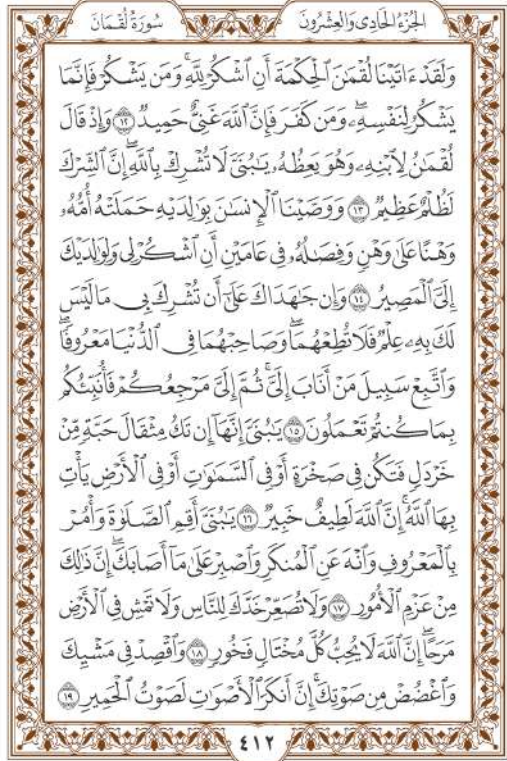 الجُزْءُ الحَادِي وَالعِشْرُونَ
سُورَةُ لُقْمَانَ
وَلَقَدۡ ءَاتَيۡنَا لُقۡمَٰنَ ٱلۡحِكۡمَةَ أَنِ ٱشۡكُرۡ لِلَّهِۚ وَمَن يَشۡكُرۡ فَإِنَّمَا
يَشۡكُرُ لِنَفۡسِهِۦۖ وَمَن كَفَرَ فَإِنَّ ٱللَّهَ غَنِيٌّ حَمِيدٞ ١٢ وَإِذۡ قَالَ
لُقۡمَٰنُ لِٱبۡنِهِۦ وَهُوَ يَعِظُهُۥ يَٰبُنَيَّ لَا تُشۡرِكۡ بِٱللَّهِۖ إِنَّ ٱلشِّرۡكَ
لَظُلۡمٌ عَظِيمٞ ١٣ وَوَصَّيۡنَا ٱلۡإِنسَٰنَ بِوَٰلِدَيۡهِ حَمَلَتۡهُ أُمُّهُۥ
وَهۡنًا عَلَىٰ وَهۡنٖ وَفِصَٰلُهُۥ فِي عَامَيۡنِ أَنِ ٱشۡكُرۡ لِي وَلِوَٰلِدَيۡكَ
إِلَيَّ ٱلۡمَصِيرُ ١٤ وَإِن جَٰهَدَاكَ عَلَىٰٓ أَن تُشۡرِكَ بِي مَا لَيۡسَ
لَكَ بِهِۦ عِلۡمٞ فَلَا تُطِعۡهُمَاۖ وَصَاحِبۡهُمَا فِي ٱلدُّنۡيَا مَعۡرُوفٗاۖ
وَٱتَّبِعۡ سَبِيلَ مَنۡ أَنَابَ إِلَيَّۚ ثُمَّ إِلَيَّ مَرۡجِعُكُمۡ فَأُنَبِّئُكُم
بِمَا كُنتُمۡ تَعۡمَلُونَ ١٥ يَٰبُنَيَّ إِنَّهَآ إِن تَكُ مِثۡقَالَ حَبَّةٖ مِّنۡ
خَرۡدَلٖ فَتَكُن فِي صَخۡرَةٍ أَوۡ فِي ٱلسَّمَٰوَٰتِ أَوۡ فِي ٱلۡأَرۡضِ يَأۡتِ
بِهَا ٱللَّهُۚ إِنَّ ٱللَّهَ لَطِيفٌ خَبِيرٞ ١٦ يَٰبُنَيَّ أَقِمِ ٱلصَّلَوٰةَ وَأۡمُرۡ
بِٱلۡمَعۡرُوفِ وَٱنۡهَ عَنِ ٱلۡمُنكَرِ وَٱصۡبِرۡ عَلَىٰ مَآ أَصَابَكَۖ إِنَّ ذَٰلِكَ
مِنۡ عَزۡمِ ٱلۡأُمُورِ ١٧ وَلَا تُصَعِّرۡ خَدَّكَ لِلنَّاسِ وَلَا تَمۡشِ فِي ٱلۡأَرۡضِ
مَرَحًاۖ إِنَّ ٱللَّهَ لَا يُحِبُّ كُلَّ مُخۡتَالٖ فَخُورٖ ١٨ وَٱقۡصِدۡ فِي مَشۡيِكَ
وَٱغۡضُضۡ مِن صَوۡتِكَۚ إِنَّ أَنكَرَ ٱلۡأَصۡوَٰتِ لَصَوۡتُ ٱلۡحَمِيرِ ١٩
٤١٢